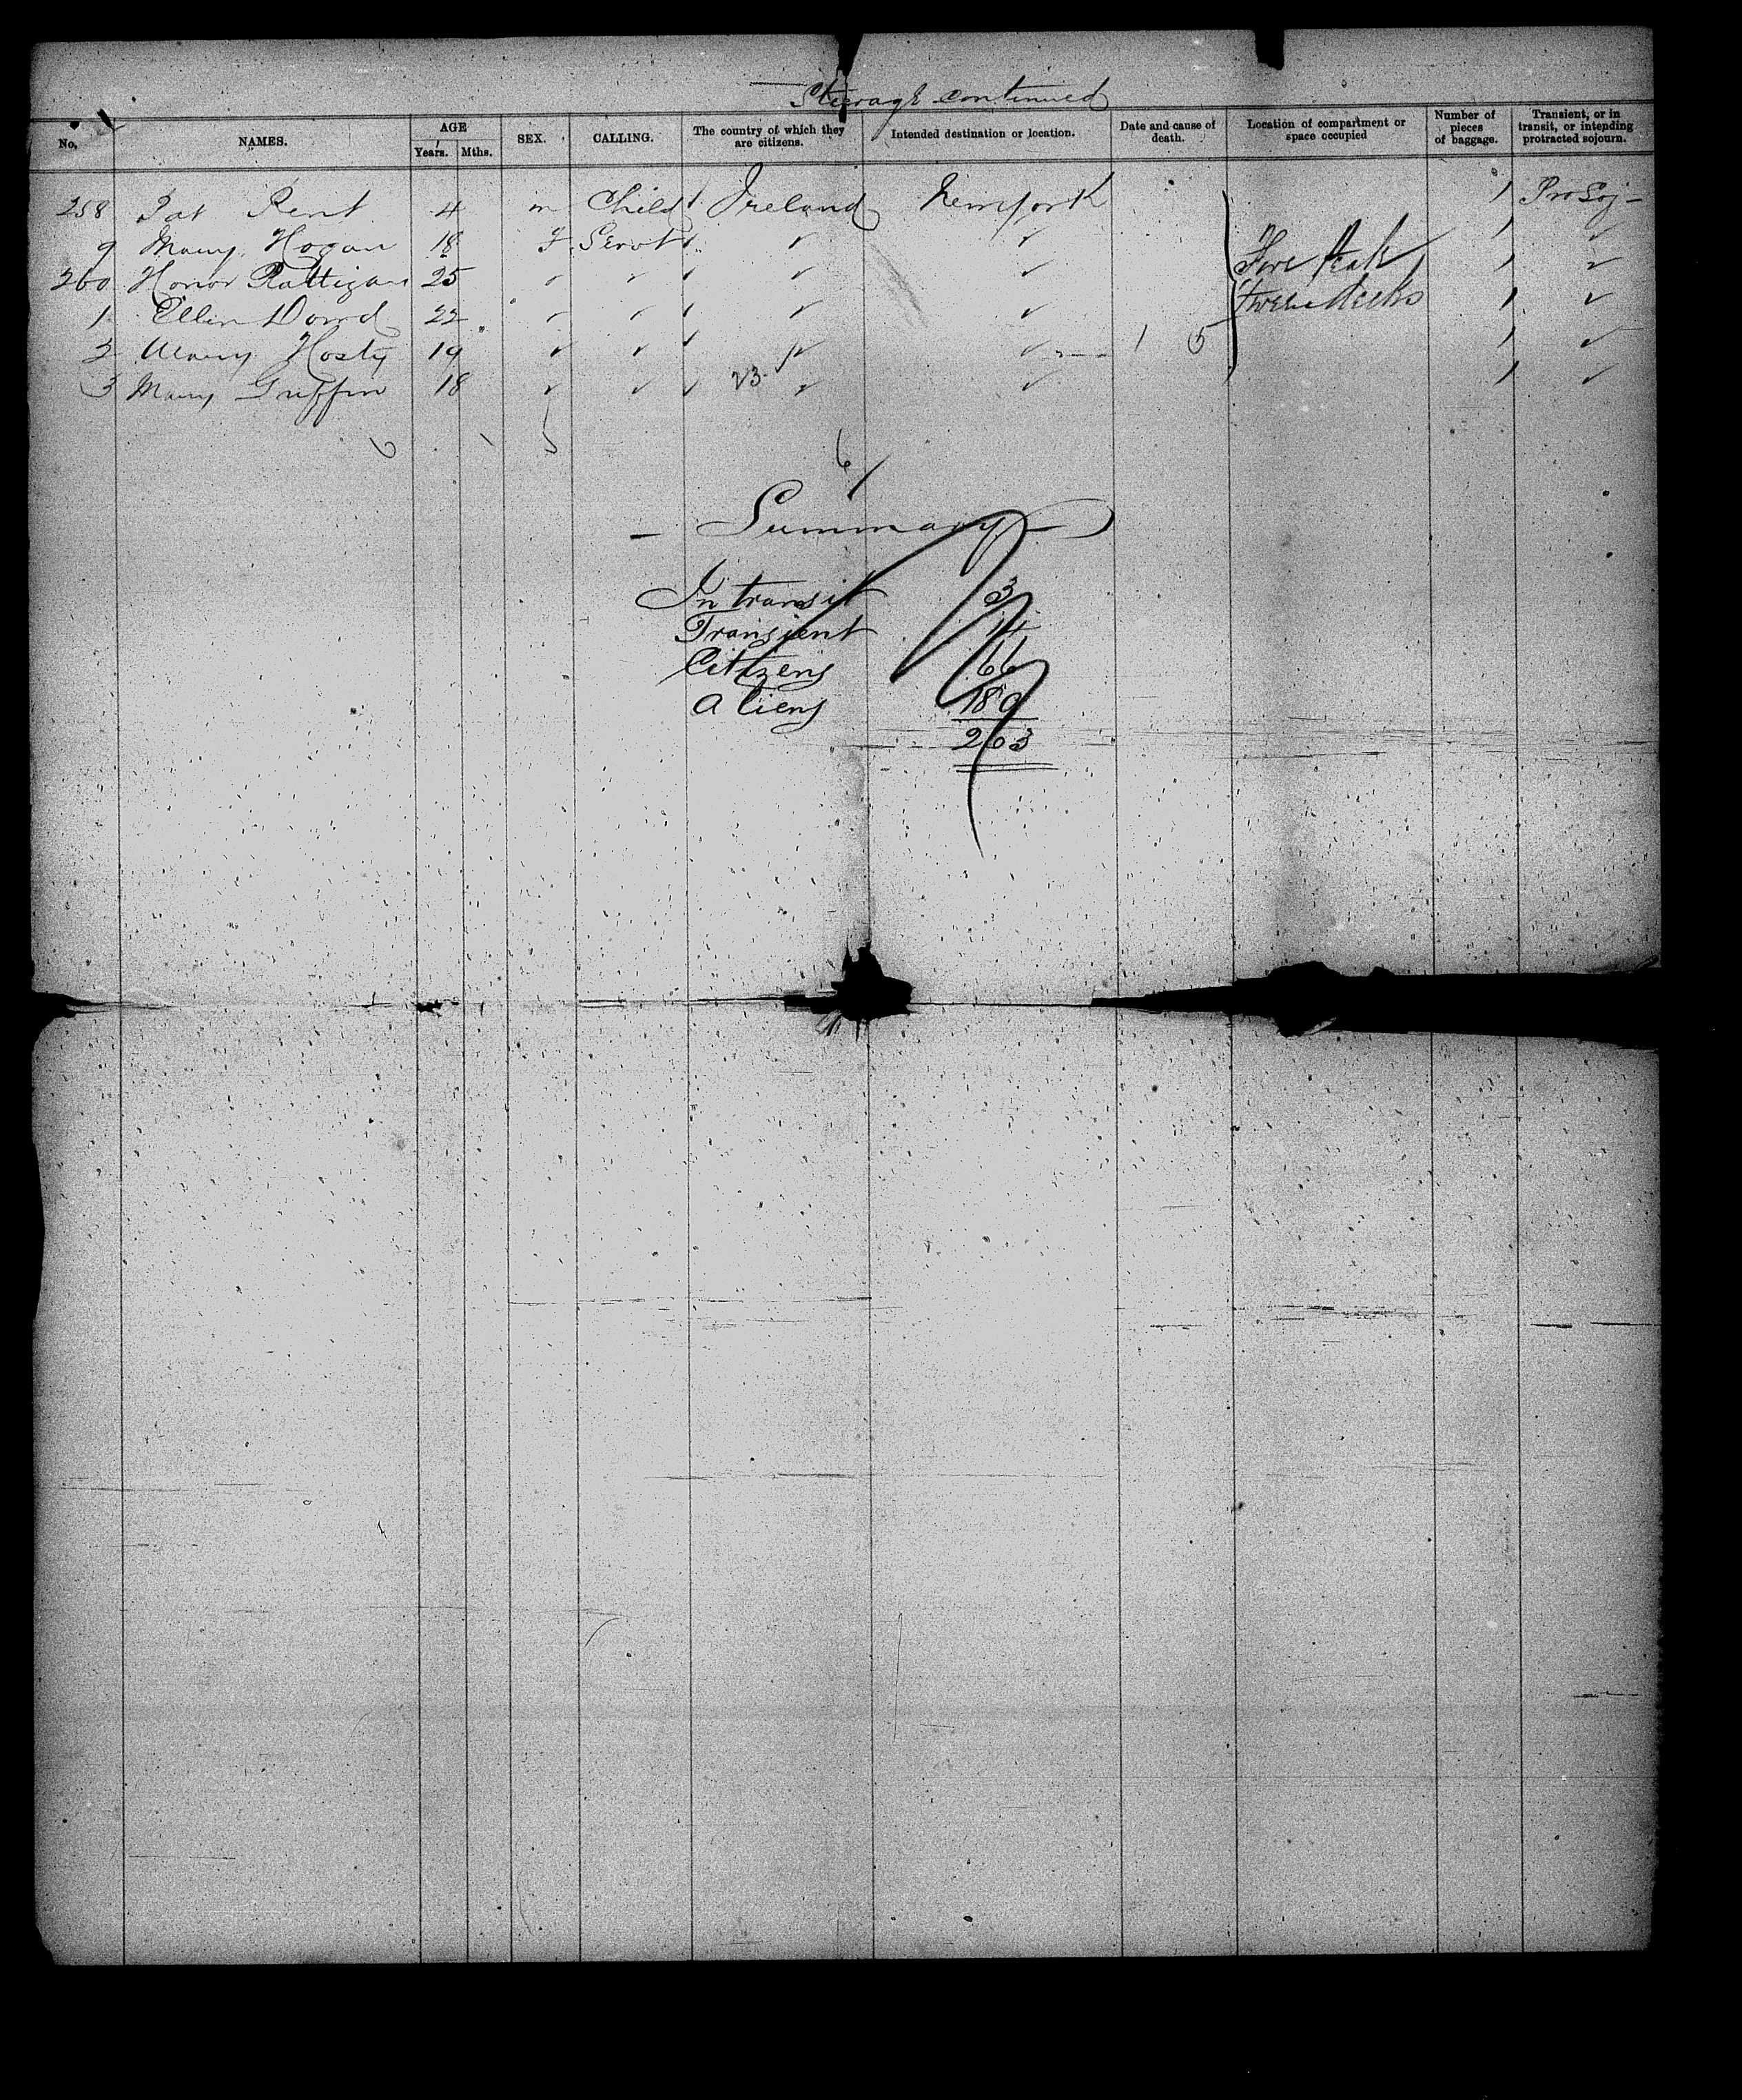 Steerage continued
No. NAMES. AGE Years. Mths. SEX. CALLING. The country of which they are citizens. Intended destination or location. Date and cause of death. Location of compartment or space occupied Number of pieces of baggage. Transient, or in transit, or intending protracted sojourn.
258 Pat Kent 4 m Child Ireland New York 1 Pro Soj -
9 Mary Hogan 18 F Servt ✓ ✓ 1 ✓
260 Honor Rattigan 25 ✓ ✓ ✓ ✓ Fore 1 ✓
1 Ellen Dowd 22 ✓ ✓ ✓ ✓ 1 ✓
2 Mary Hosty 19 ✓ ✓ ✓ ✓ 1 5 1 ✓
3 Mary Griffin 18 ✓ ✓ 23 ✓ ✓ 1 ✓
6 1 5
6
Summary
In transit 3
Transient 14
Citizens 66
Aliens 180
263